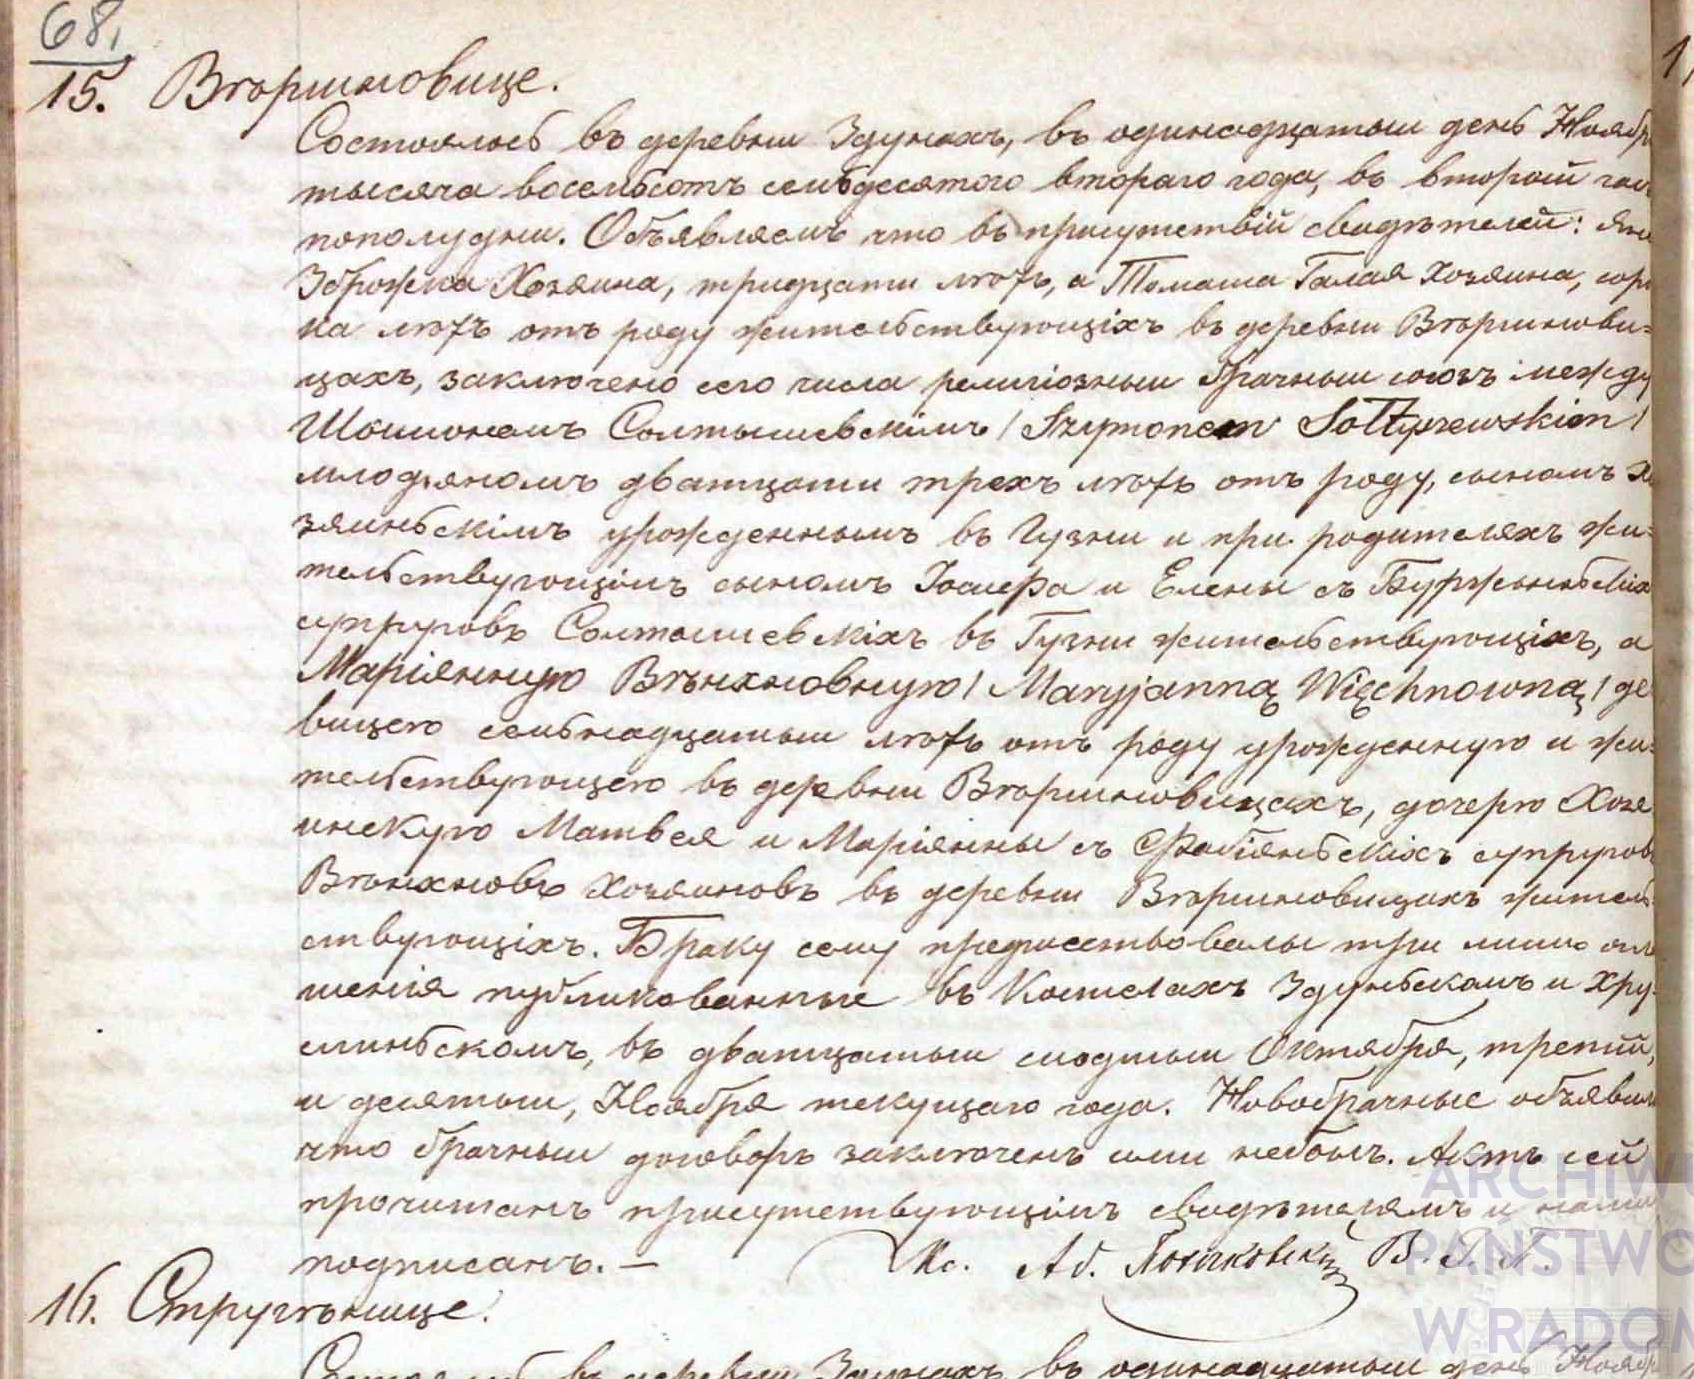 68,
15. Вгорминовице.
Состоялось въ деревни Здунахъ, въ одинадцатым день Ноябр
тысяча восемьсотъ семьдесятого втораго года, въ второй час
пополудни. Объявляемъ что въ присутствій свидѣтелей: Яна
Зброжка Хозяина, тридцати лютъ, а Томаша Галая Хозяина, соро
ка лютъ отъ роду жительствующіхъ въ деревни Вгорминови-
цахъ, заключено сего числа религіозным брачным союзъ между
Шимономъ Солтышевскімъ / Szymonem Sołtyszewskim /
млодяномъ дватцати трехъ лютъ отъ роду, сыномъ Хо
зяиньскімъ урожденнымъ въ Гузни и при родителяхъ жи-
тельствующімъ сыномъ Іосифа и Елены съ Буржыньскіхъ
супруговъ Солтышевскіхъ въ Гузни жительствующіхъ, а
Маріянную Вѣнхновную / Maryjanną Więchnowną / де
вицею семьнадцатым лютъ отъ роду урожденную и жи-
тельствующею въ деревни Вгорминовицахъ, дочерю Хозя
инскую Матвея и Маріянны съ Фабіяньскіхъ супруговъ
Вѣнхновъ Хозяиновъ въ деревни Вгорминовицахъ житель
ствующіхъ. Браку сему предшествовалы три огла
шенія публикованные въ Костелахъ Здуньскомъ и Хру-
слиньскомъ, въ дватцатым сиодмым Октября, третій,
и десятым, Ноября текущаго года. Новобрачные объявили
что брачным договоръ заключенъ ими небылъ. Актъ сей
прочитанъ присутствующімъ свидѣтелямъ и нами
подписанъ. —
Кс. Аб. В. Г. А.
16. Стругѣнице.
Состоялось въ деревни Здунахъ, въ одинадцатым день Ноябр
ARCHIWU
PAŃSTWO
W RADOM